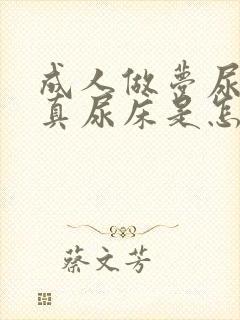 成人做梦尿
真尿床是怎
蔡文芳